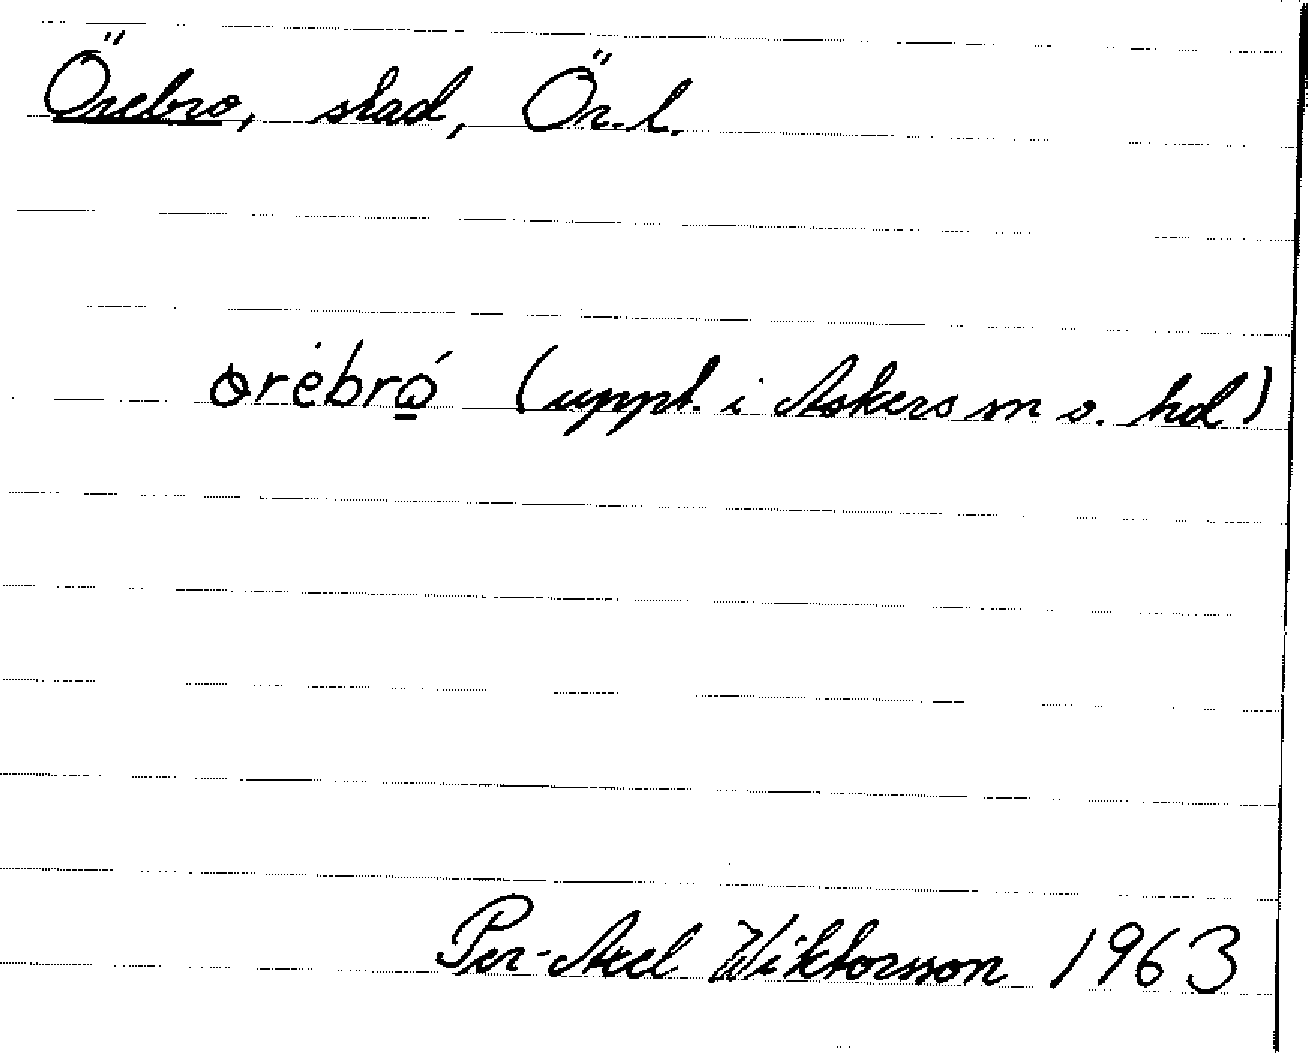 Örebro, stad, Ör. l.
örėbró̲ (uppt. i Askers sn o. hd)
Per-Axel Wiktorsson 1963